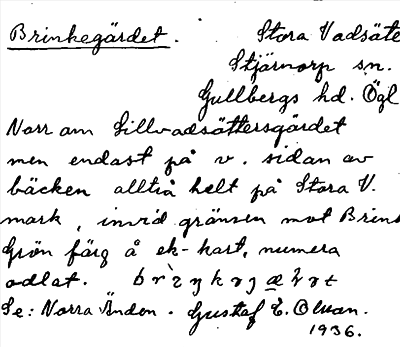 Brinkegärdet. Stora Vadsäte
Stjärnorp sn.
Gullbergs hd. Ögl
Norr om Sillvadsättersgärdet
men endast på v. sidan av
bäcken alltså helt på Stora V.
mark, invid gränsen mot Brink
Grön färg å ek-kart, numera
odlat.
Se: Norra Änden. Gustaf E. Olsson.
1936.